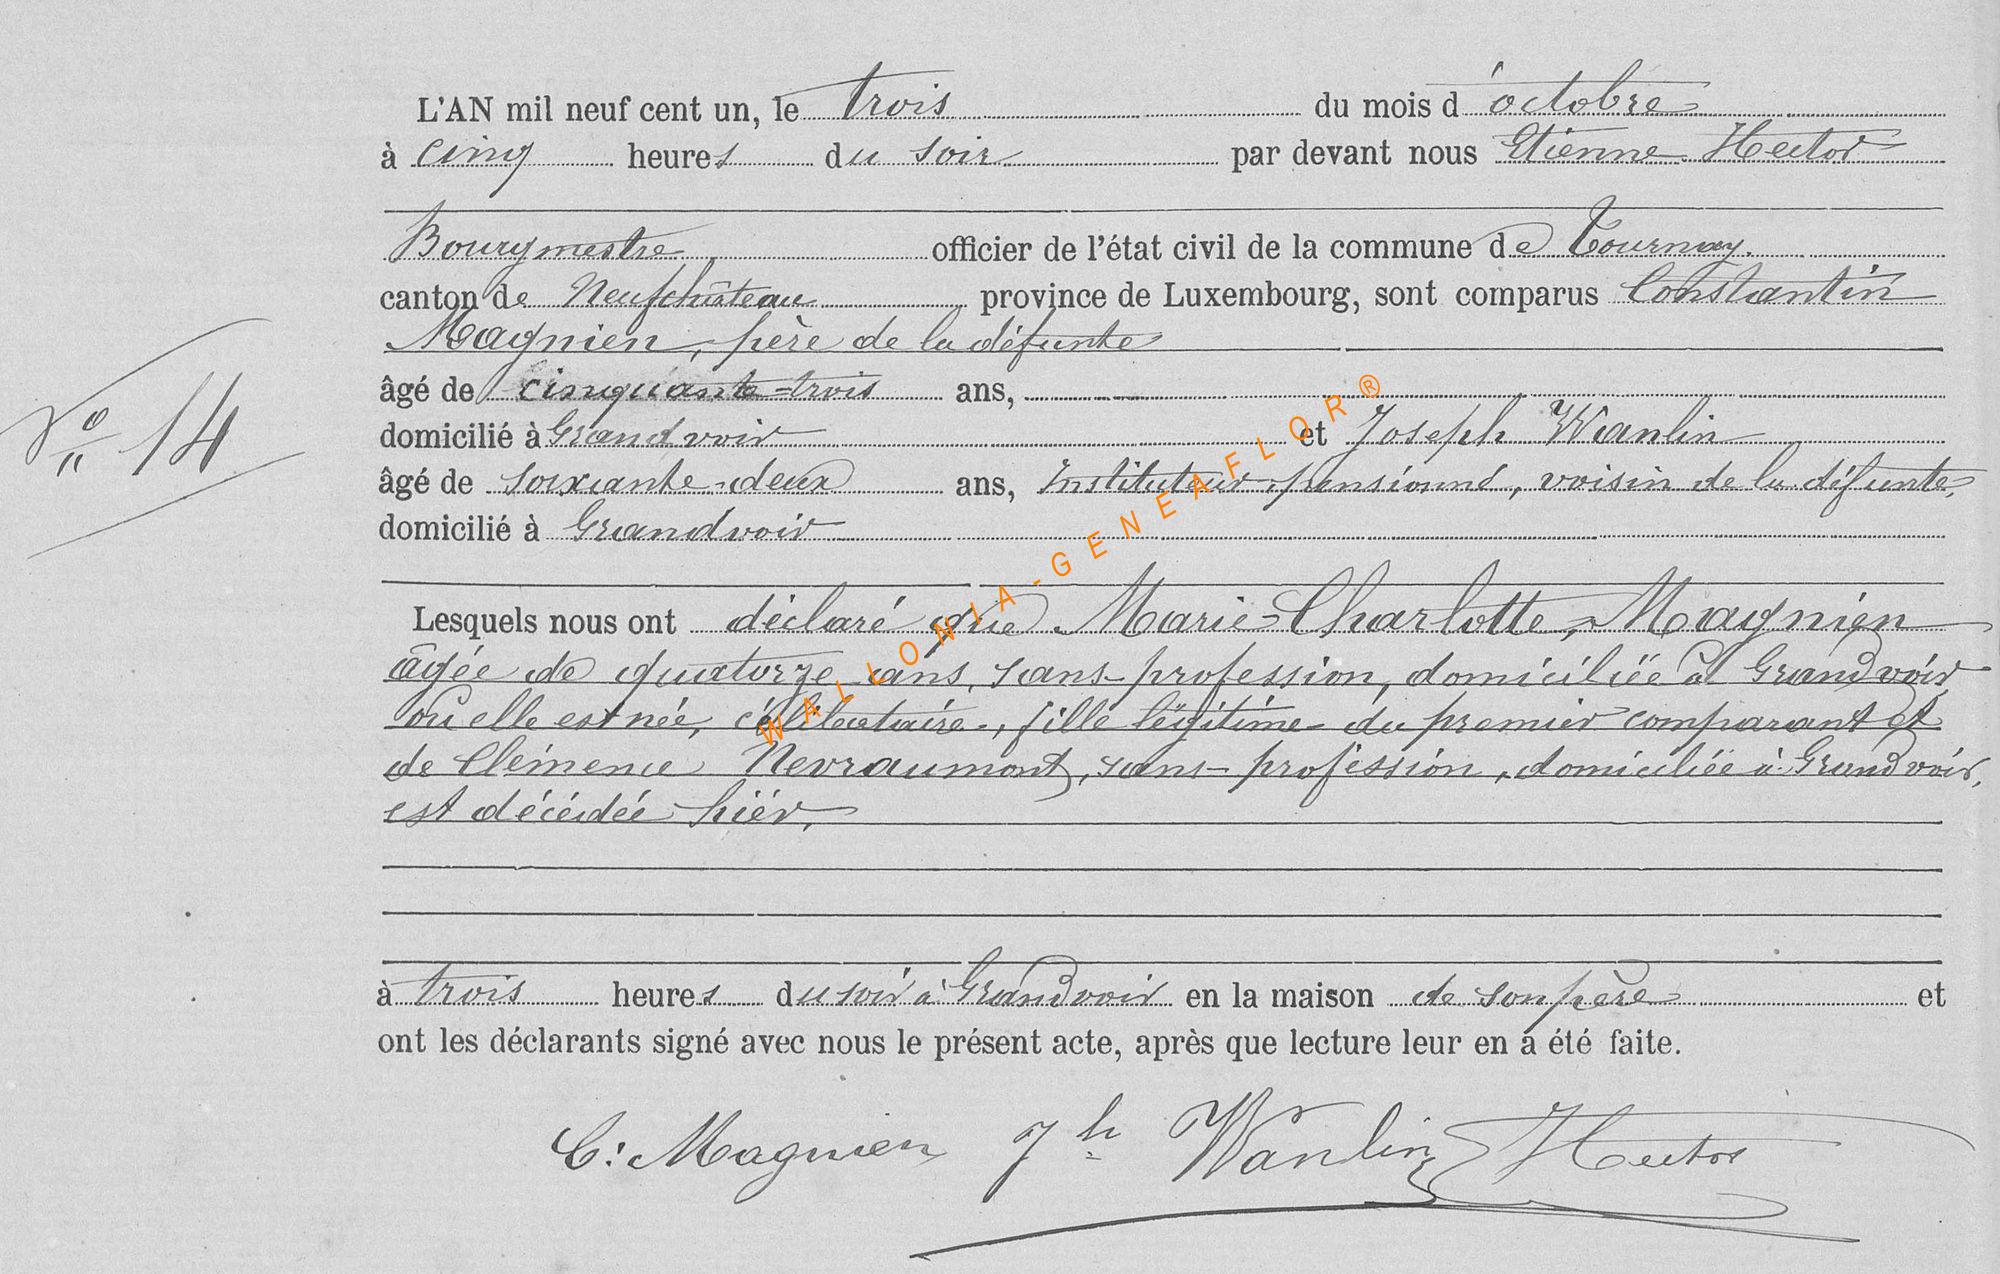 L'AN mil neuf cent un, le trois du mois d'octobre
à cinq heures du soir par devant nous Etienne Hector
Bourgmestre officier de l'état civil de la commune de Tournay.
canton de Neufchâteau province de Luxembourg, sont comparus Constantin
Magnien, père de la défunte
âgé de cinquante-trois ans,
domicilié à Grandvoir et Joseph Wanlin
âgé de soixante-deux ans, Instituteur pensionné, voisin de la défunte,
domicilié à Grandvoir
N° 14
Lesquels nous ont déclaré que Marie-Charlotte, Magnien
âgée de quatorze ans, sans-profession, domiciliée à Grandvoir
où elle est née, célibataire, fille légitime du premier comparant et
de Clémence Nevraumont, sans-profession, domiciliée à Grandvoir,
est décédée hier,
à trois heures du soir à Grandvoir en la maison de son père et
ont les déclarants signé avec nous le présent acte, après que lecture leur en a été faite.
C: Magnien Jh Wanlin Hector
WALLONIA-GENEAFLOR®